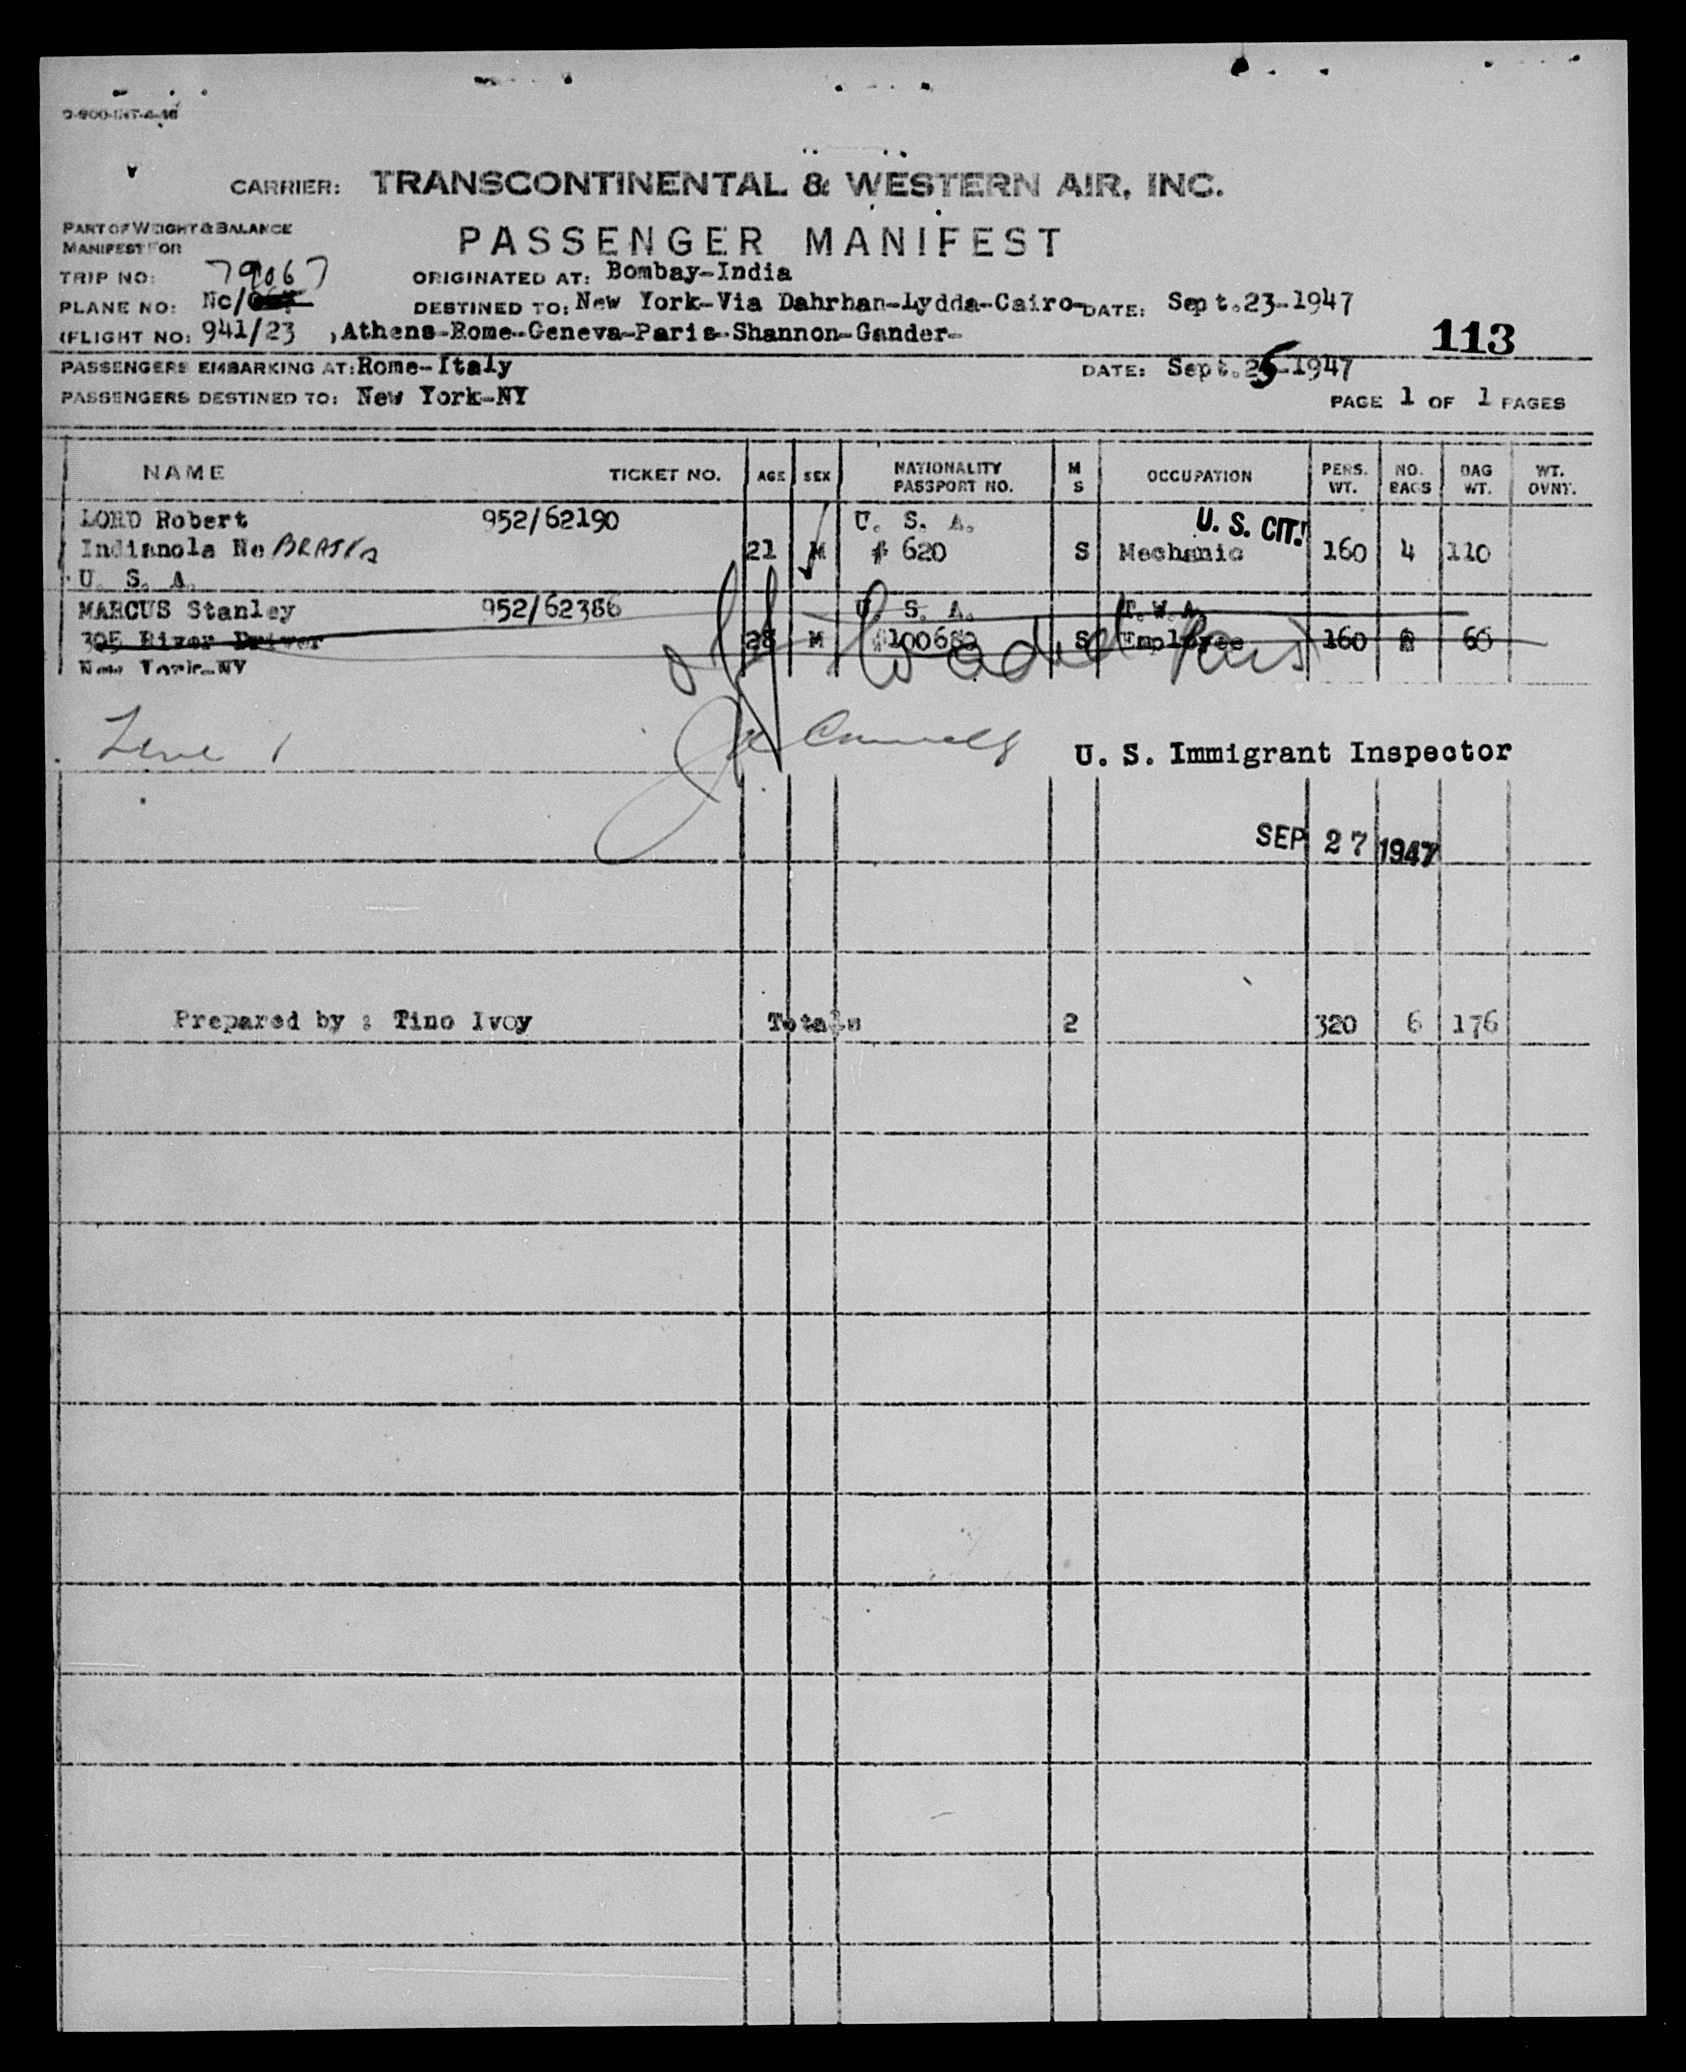 CARRIER: TRANSCONTINENTAL & WESTERN AIR, INC.
PART OF WEIGHT & BALANCE
MANIFEST FOR
PASSENGER MANIFEST
TRIP NO: 79067 ORIGINATED AT: Bombay-India
PLANE NO: Nc/ DESTINED TO: New York-Via Dahrhan-Lydda-Cairo- DATE: Sept.23-1947
(FLIGHT NO: 941/23 ,Athens-Rome-Geneva-Paris-Shannon-Gander-
113
PASSENGERS EMBARKING AT: Rome-Italy DATE: Sept.25-1947
PASSENGERS DESTINED TO: New York-NY PAGE 1 OF 1 PAGES
NAME TICKET NO. AGE SEX NATIONALITY PASSPORT NO. M S OCCUPATION PERS. WT. NO. BAGS BAG WT. WT. OVNT.
LORD Robert 952/62190 U. S. A. U. S. CIT.
Indianola Ne BRASKA 21 M # 620 S Mechanic 160 4 110
U. S. A.
MARCUS Stanley 952/62386 U. S. A. T.W.A.
305 River Driver 28 M S Employee 160 2 66
New York-NY
off loaded Paris
Line 1 U. S. Immigrant Inspector
SEP 27 1947
Prepared by : Tino Ivoy Totals 2 320 6 176